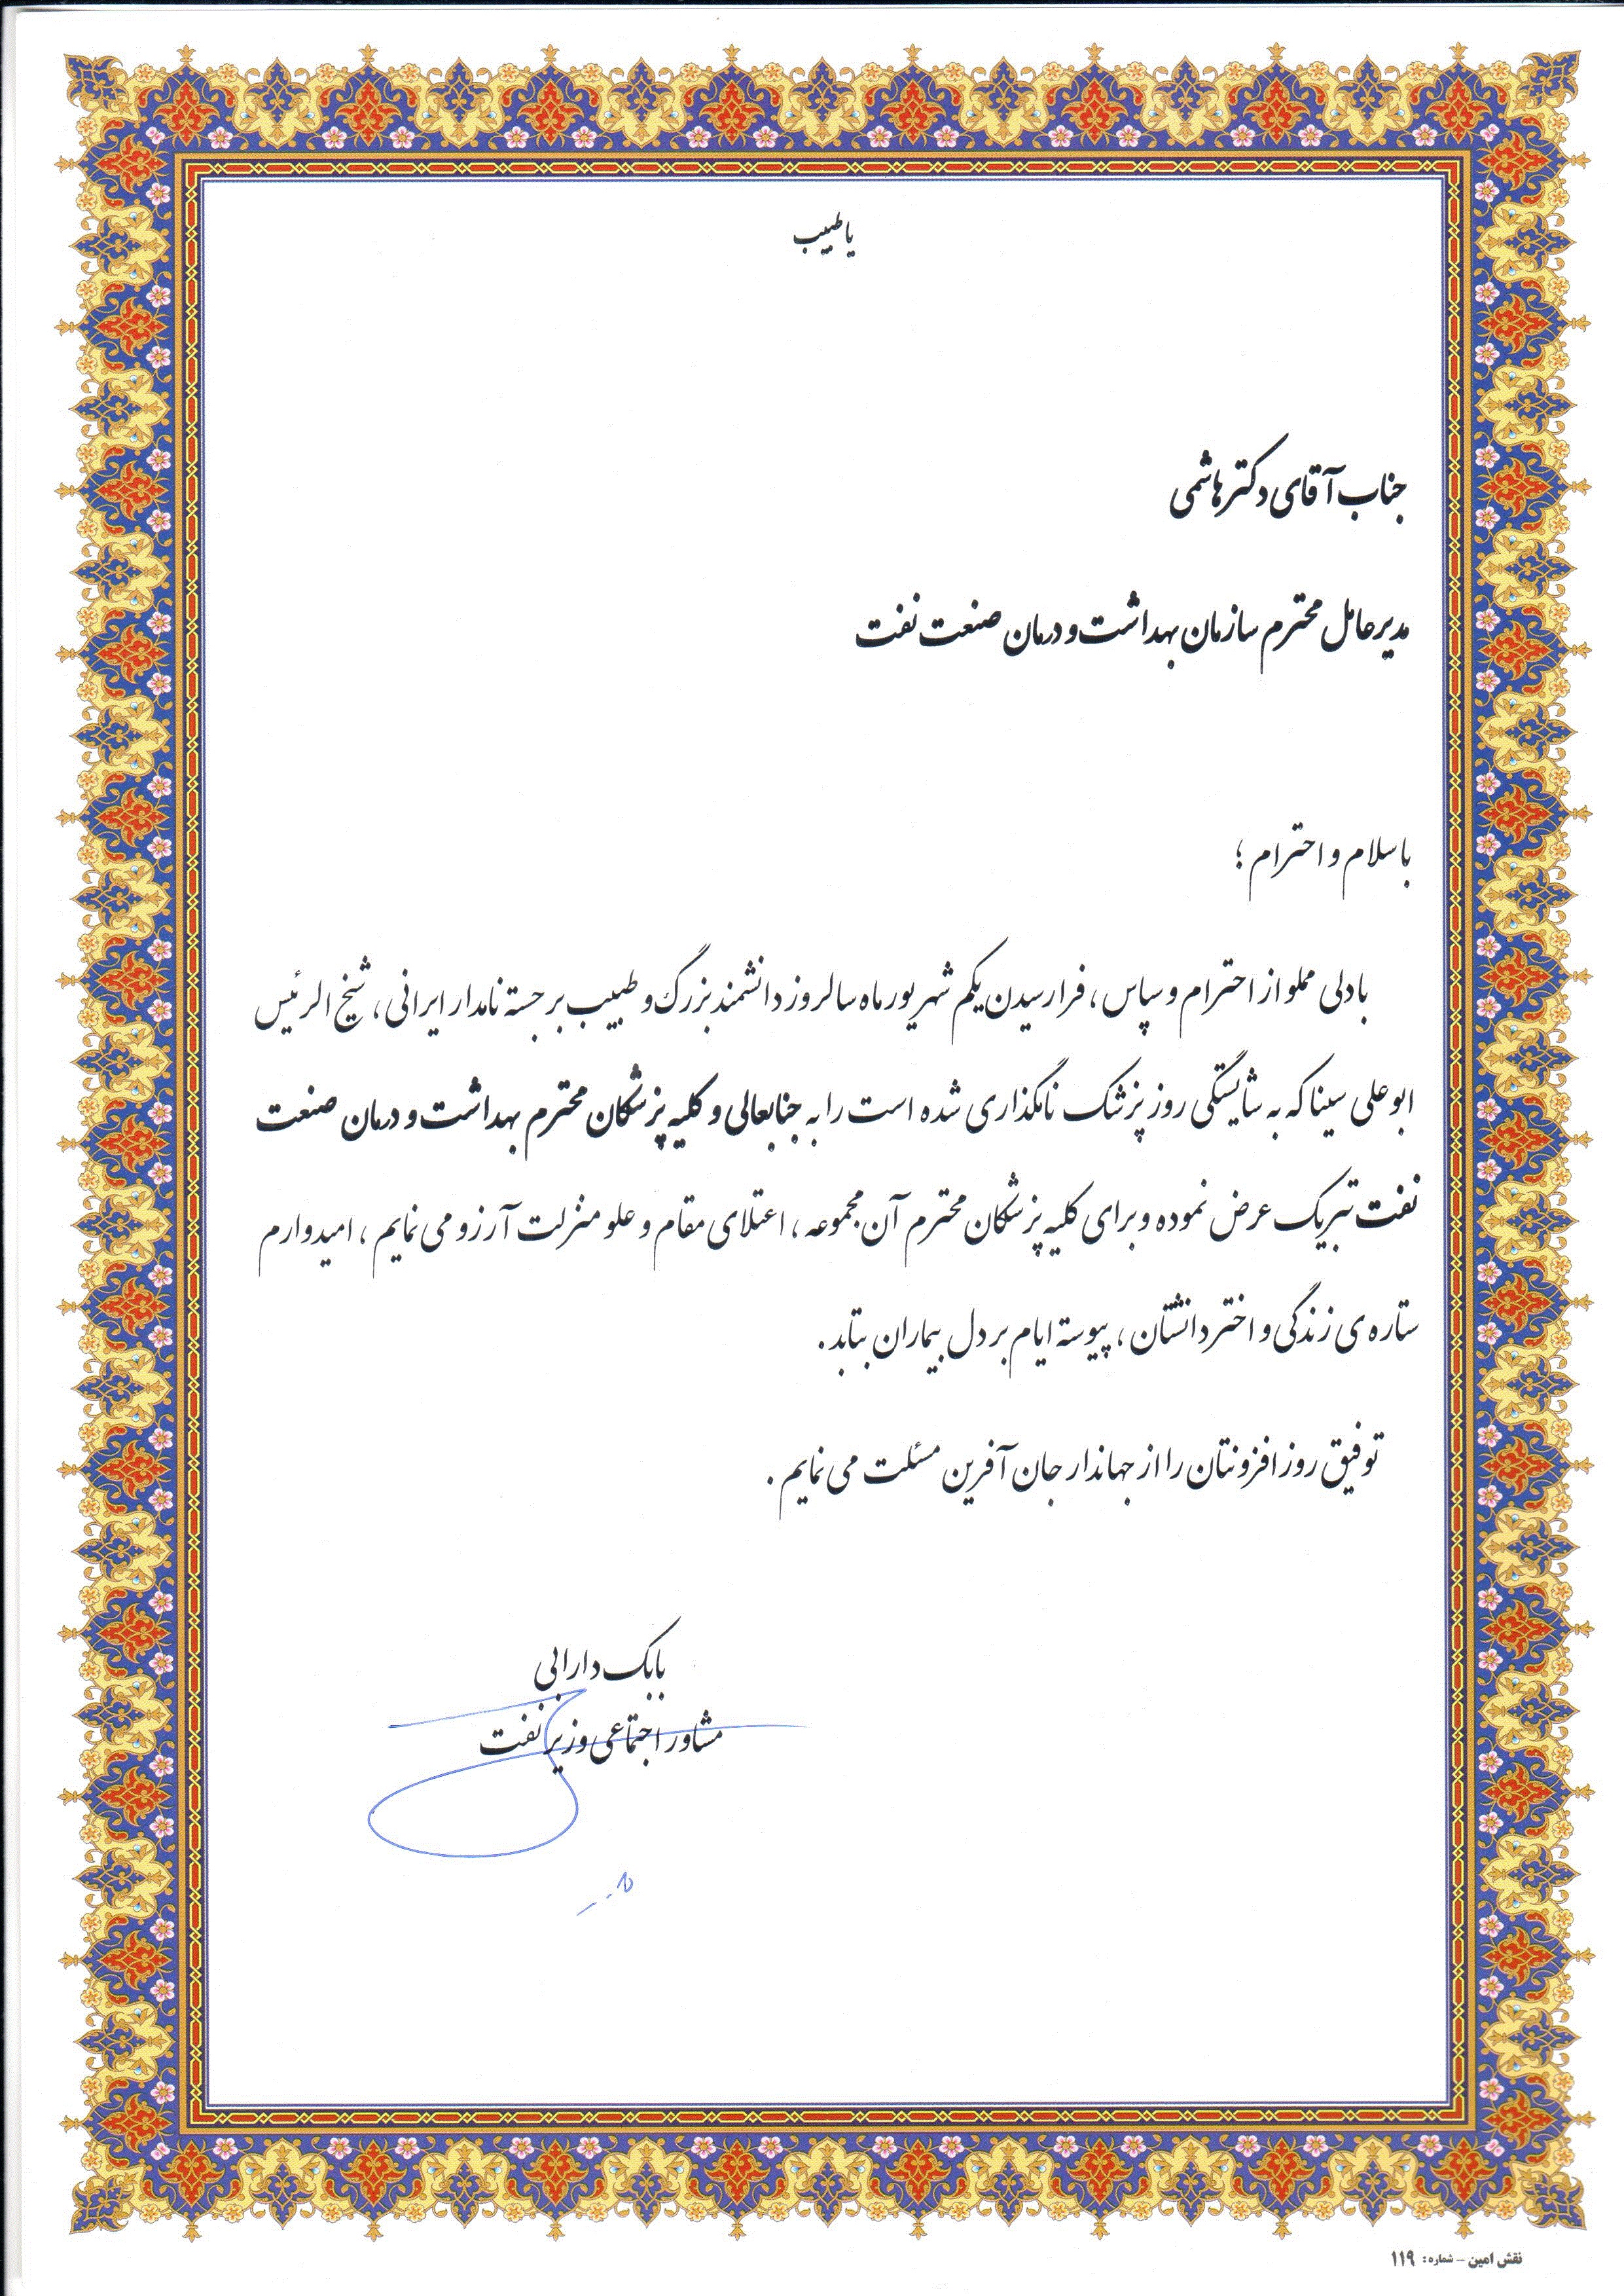 یا طبیب
جناب آقای دکتر هاشمی
مدیرعامل محترم سازمان بهداشت و درمان صنعت نفت
با سلام و احترام ؛
با دلی مملو از احترام و سپاس ، فرا رسیدن یکم شهریور ماه سالروز دانشمند بزرگ و طبیب برجسته نامدار ایرانی ، شیخ الرئیس
ابوعلی سینا که به شایستگی روز پزشک نامگذاری شده است را به جنابعالی و کلیه پزشکان محترم بهداشت و درمان صنعت
نفت تبریک عرض نموده و برای کلیه پزشکان محترم آن مجموعه ، اعتلای مقام و علو منزلت آرزو می نمایم ، امیدوارم
ستاره ی زندگی و اختر دانشتان ، پیوسته ایام بر دل بیماران بتابد .
توفیق روز افزونتان را از جهاندار جان آفرین مسئلت می نمایم .
بابک دارابی
مشاور اجتماعی وزیر نفت
نقش امین – شماره : ۱۱۹